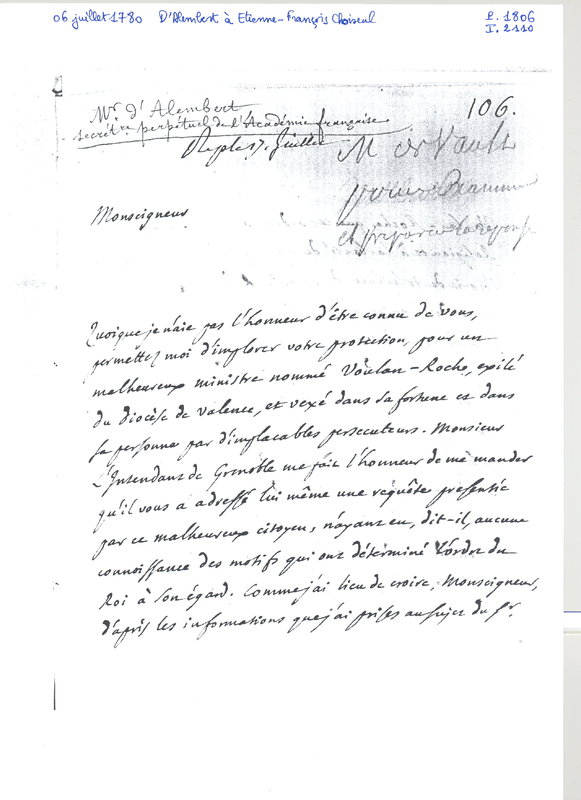 06 juillet 1780 D'Alembert à Etienne-François Choiseul
P. 1806
I. 2110
106.
Mr. d'Alembert
secrétre perpétuel de l'Académie françoise
juillet
M de Vault
Monseigneur
Quoique je n'aie pas l'honneur d'être connu de vous,
permettez moi d'implorer votre protection, pour un
malheureux ministre nommé Voulan-Roche, exilé
du diocèse de valence, et vexé dans sa fortune et dans
sa personne par d'implacables persecuteurs. Monsieur
L'Intendant de Grenoble me fait l'honneur de me mander
qu'il vous a adressé lui même une requête presentée
par ce malheureux citoyen, n'ayant eu, dit-il, aucune
connoissance des motifs qui ont déterminé l'ordre du
Roi à son égard. Comme j'ai lieu de croire, Monseigneur,
d'après les informations que j'ai prises au sujet du Sr.